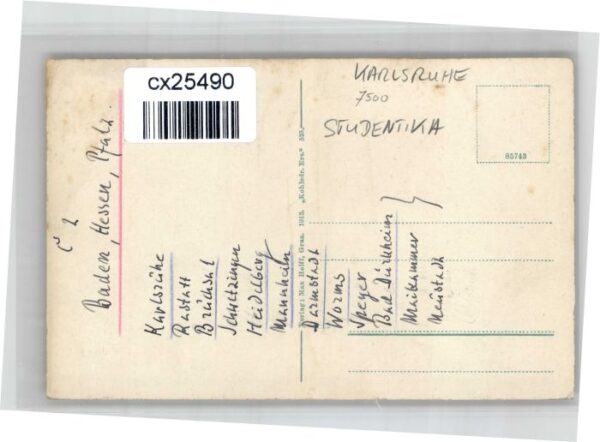 cx25490
KARLSRUHE
7500
STUDENTIKA
85743
C 2
Baden, Hessen, Pfalz.
Karlsruhe
Rastatt
Bruchsal
Schwetzingen
Heidelberg
Mannheim
Verlag: Max Helff, Graz. 1915. „Kohledr. Era."
Darmstadt
Worms
Speyer
Bad Dürkheim
Maikammer
Neustadt